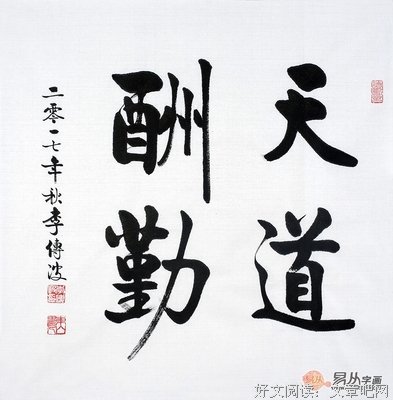 天道
酬勤
二零一七年秋李傳波
易从
易从字画
好文阅读：文章吧网